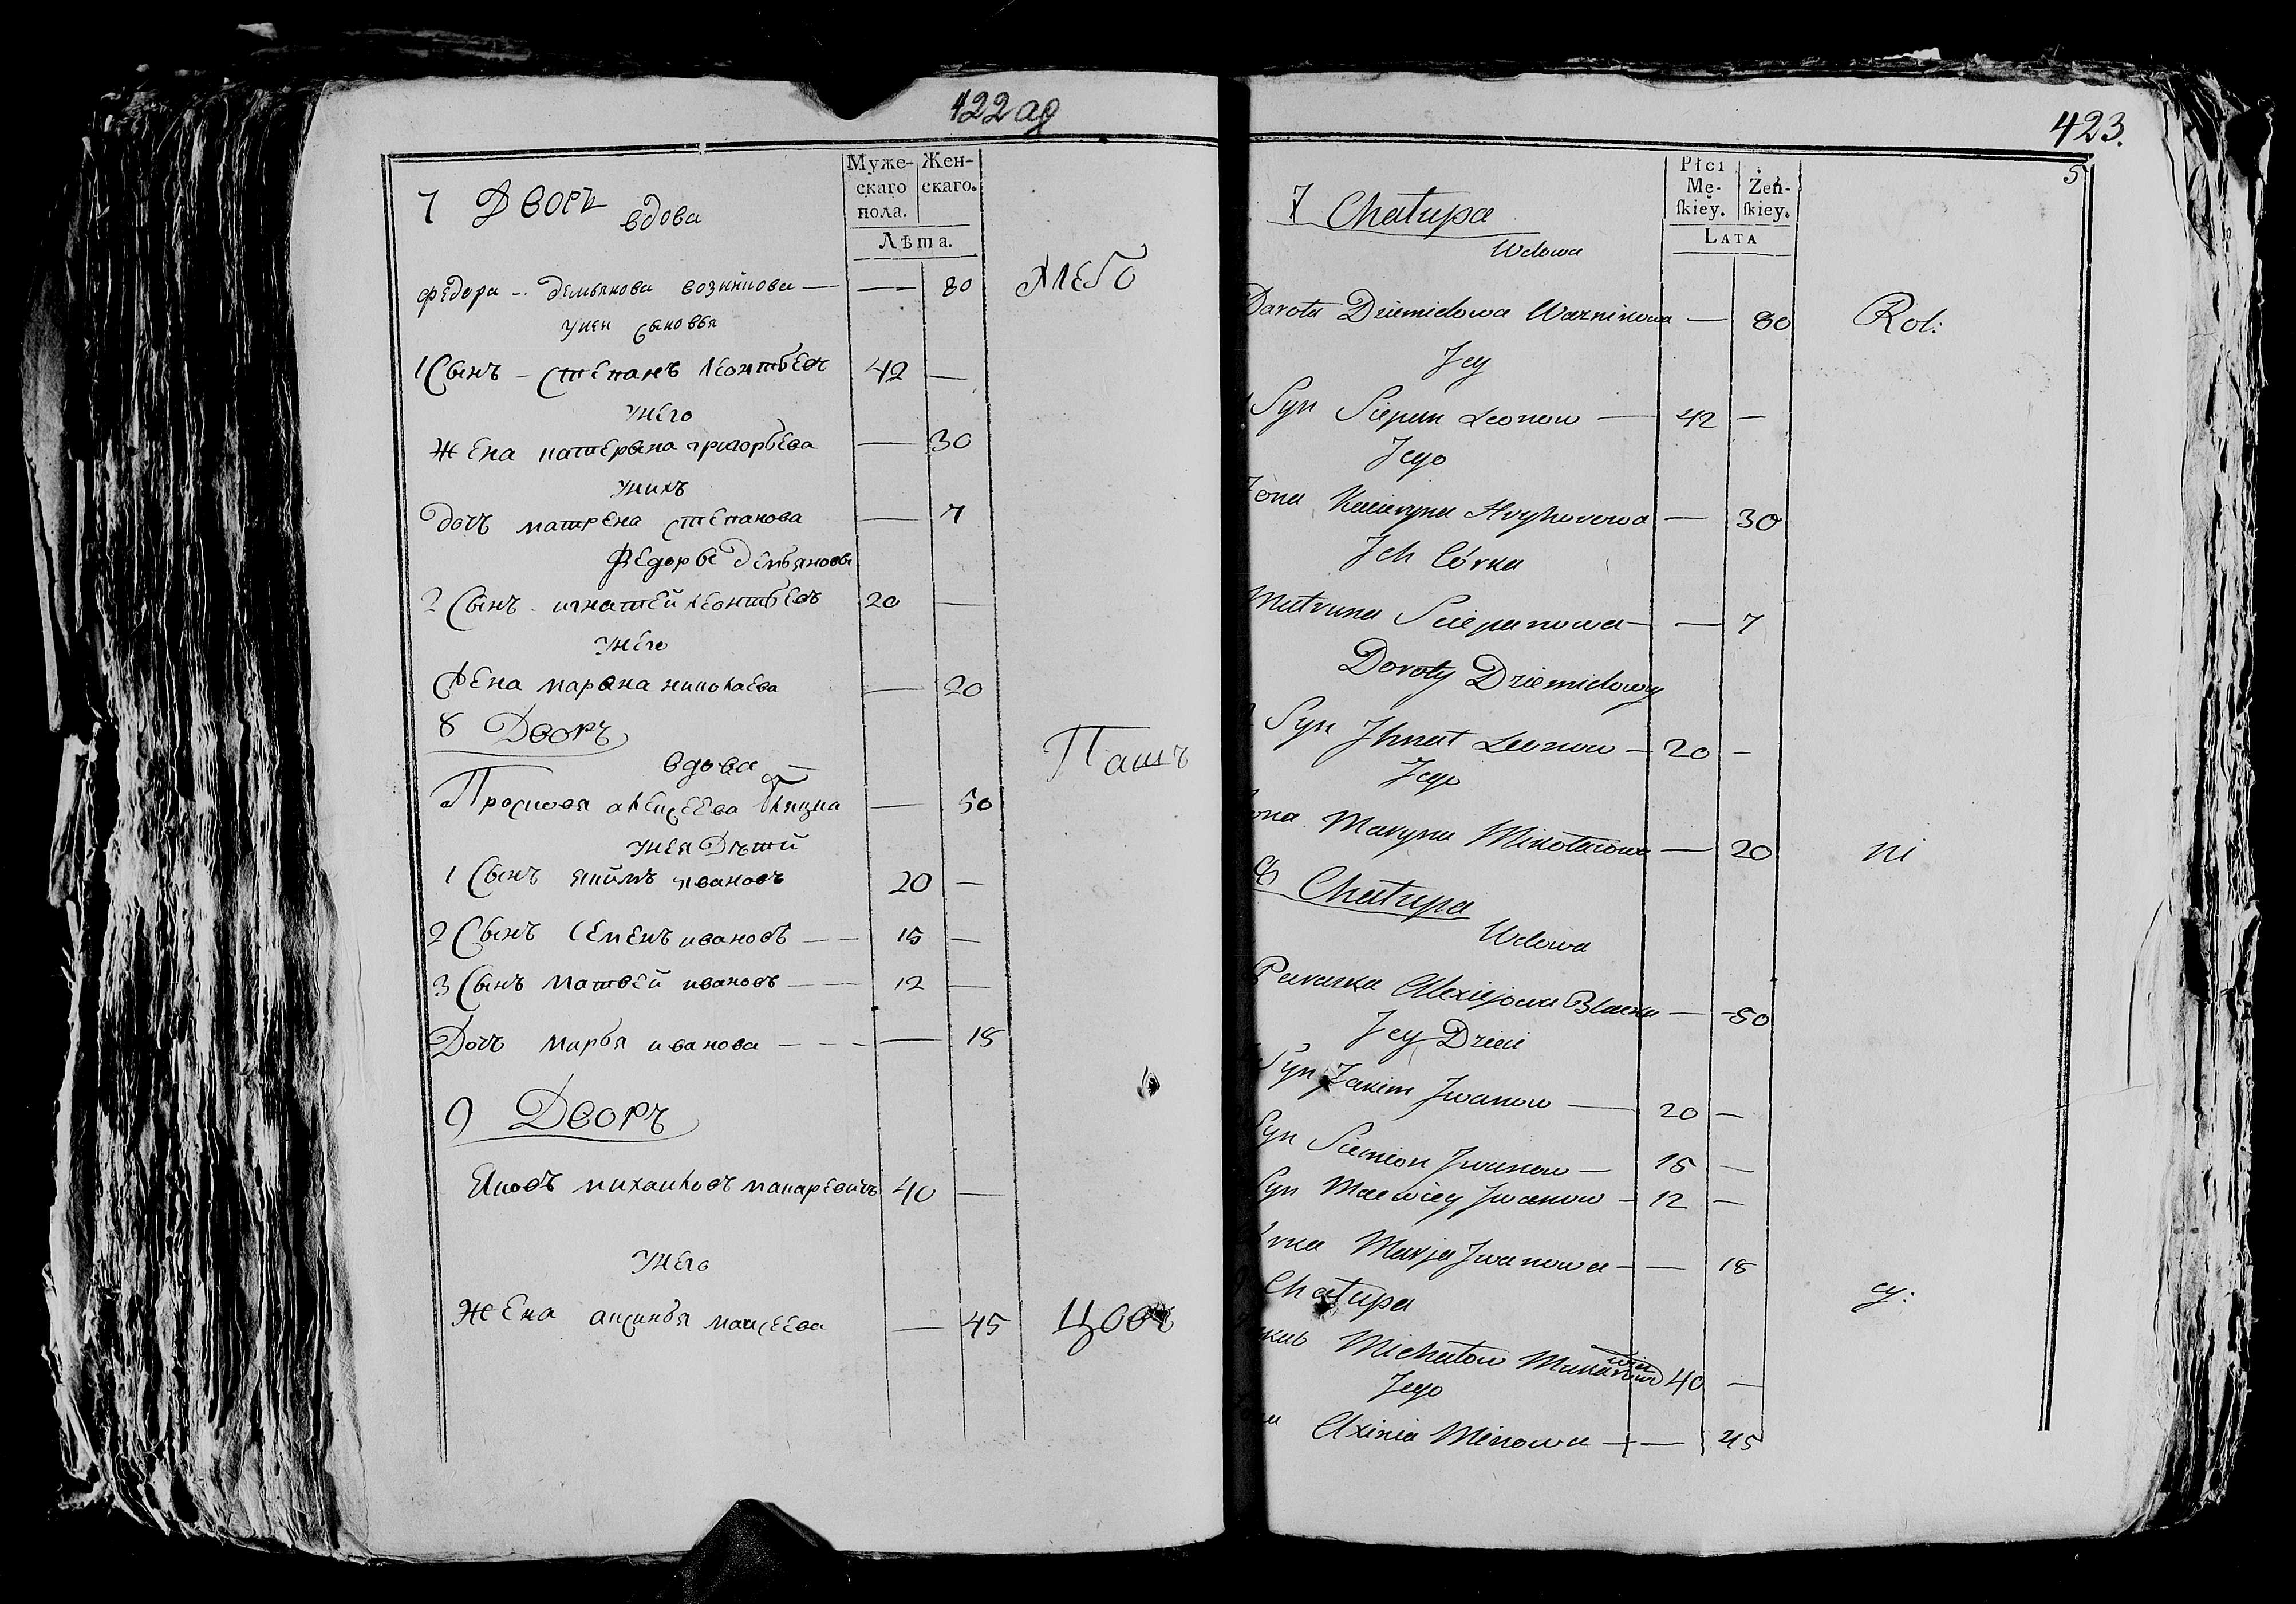 422 ад
Муже-
скаго
пола.
Жен-
скаго.
Лѣта.
7 Дворъ
вдова
Федора - демьянова возникова — — 80 Хлебо
унеи сыновья
1 Сынъ - Степанъ Леонтьевъ 42 —
унего
Жена катерына григорьева — 30
унихъ
дочъ матрена степанова — 7
Федоры демьяновы
2 Сынъ - игнатей леонтьевъ 20 —
унего
Жена марына николаева — 20
8 Дворъ
вдова
Пашъ
Просковя алексеева — 50
унея Дѣтй
1 Сынъ якимъ ивановъ 20 —
2 Сынъ Семенъ ивановъ — 15 —
3 Сынъ матвей ивановъ — 12 —
Дочъ марья иванова — — 18
9 Дворъ
Яковъ михаиловъ макаревичъ 40 —
унего
Жена аксинья моисеева — 45
423.
5
Płci
Mę-
skiey.
Żeń-
skiey.
LATA
7 Chałupa
Wdowa
Darota Dziemidowa Waznikowa — 80 Rol:
Jey
Syn Sciepan Leonow — 42 —
Jego
Żona Kacieryna Hryhorowa — 30
Jch Córka
Matruna Sciepanowa — — 7
Doroty Dziemidowy
Syn Jhnat Leonow — 20 —
Jego
ona Maryna Mikołaiowa — 20 ni
8 Chałupa
Wdowa
Paraska Alexiejowa — 50
Jey Dzieci
Syn Jakim Jwanow — 20 —
Syn Siemion Jwanow — 15 —
Syn Maćwiey Jwanow — 12 —
rka Marja Jwanowa — — 18
Chałupa cy:
kub Michałow Makarowicz 40 —
Jego
a Axinia Minowa — — 45